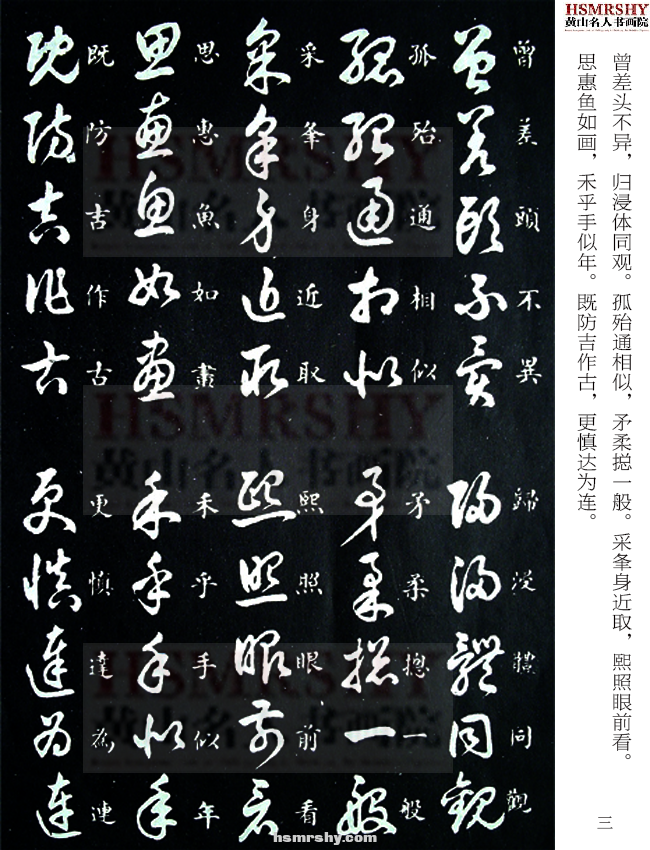 HSMRSHY
黄山名人书画院
曾差头不异，归浸体同观。孤殆通相似，矛柔揔一般。采夆身近取，熙照眼前看。
思惠鱼如画，禾乎手似年。既防吉作古，更慎达为连。
三
曾差頭不異
歸浸體同觀
孤殆通相似
矛柔揔一般
采夆身近取
熙照眼前看
思惠魚如畫
禾乎手似年
既防吉作古
更慎達為連
HSMRSHY
黄山名人书画院
HSMRSHY
黄山名人书画院
HSMRSHY
黄山名人书画院
hsmrshy.com